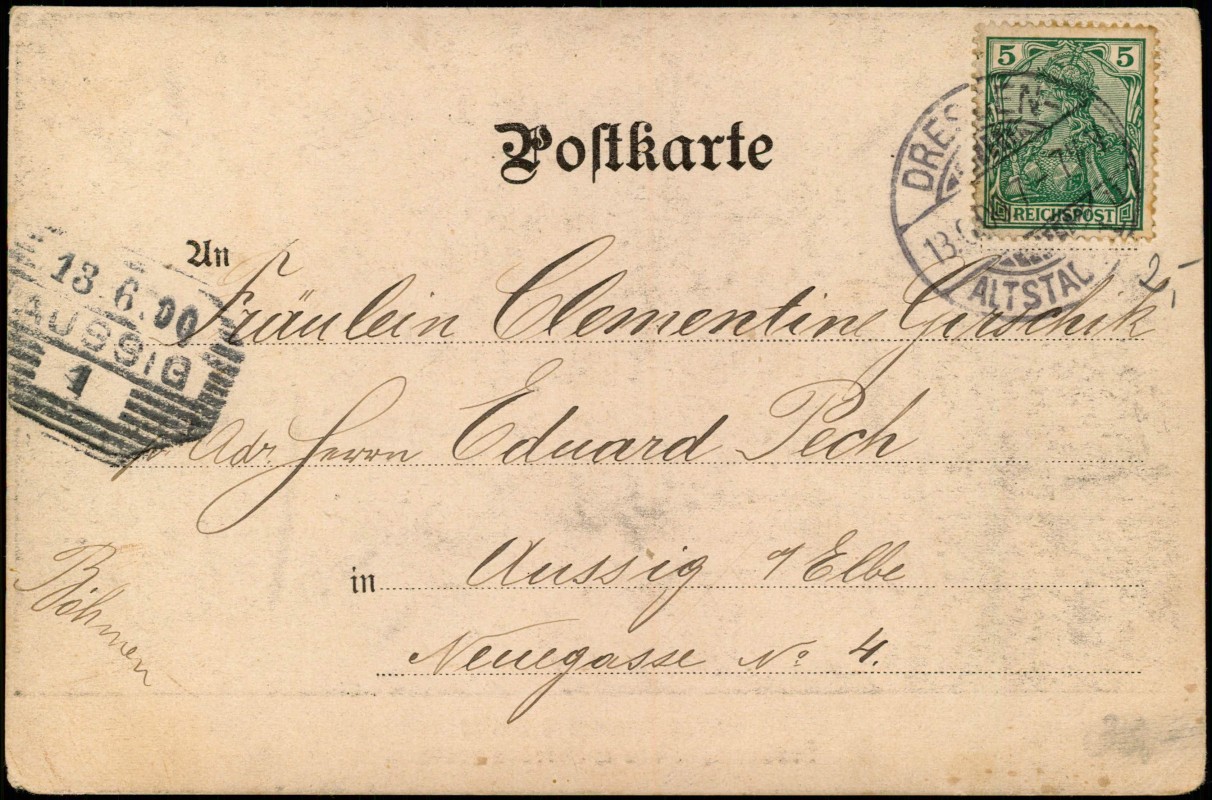 Postkarte
5 5
REICHSPOST
DRESDEN
ALTSTADT
13.6.00
AUSSIG
1
An Fräulein Clementine Girschik
Adr Herrn Eduard Pech
in Aussig a/Elbe
Neuegasse No 4.
Böhmen
2,-